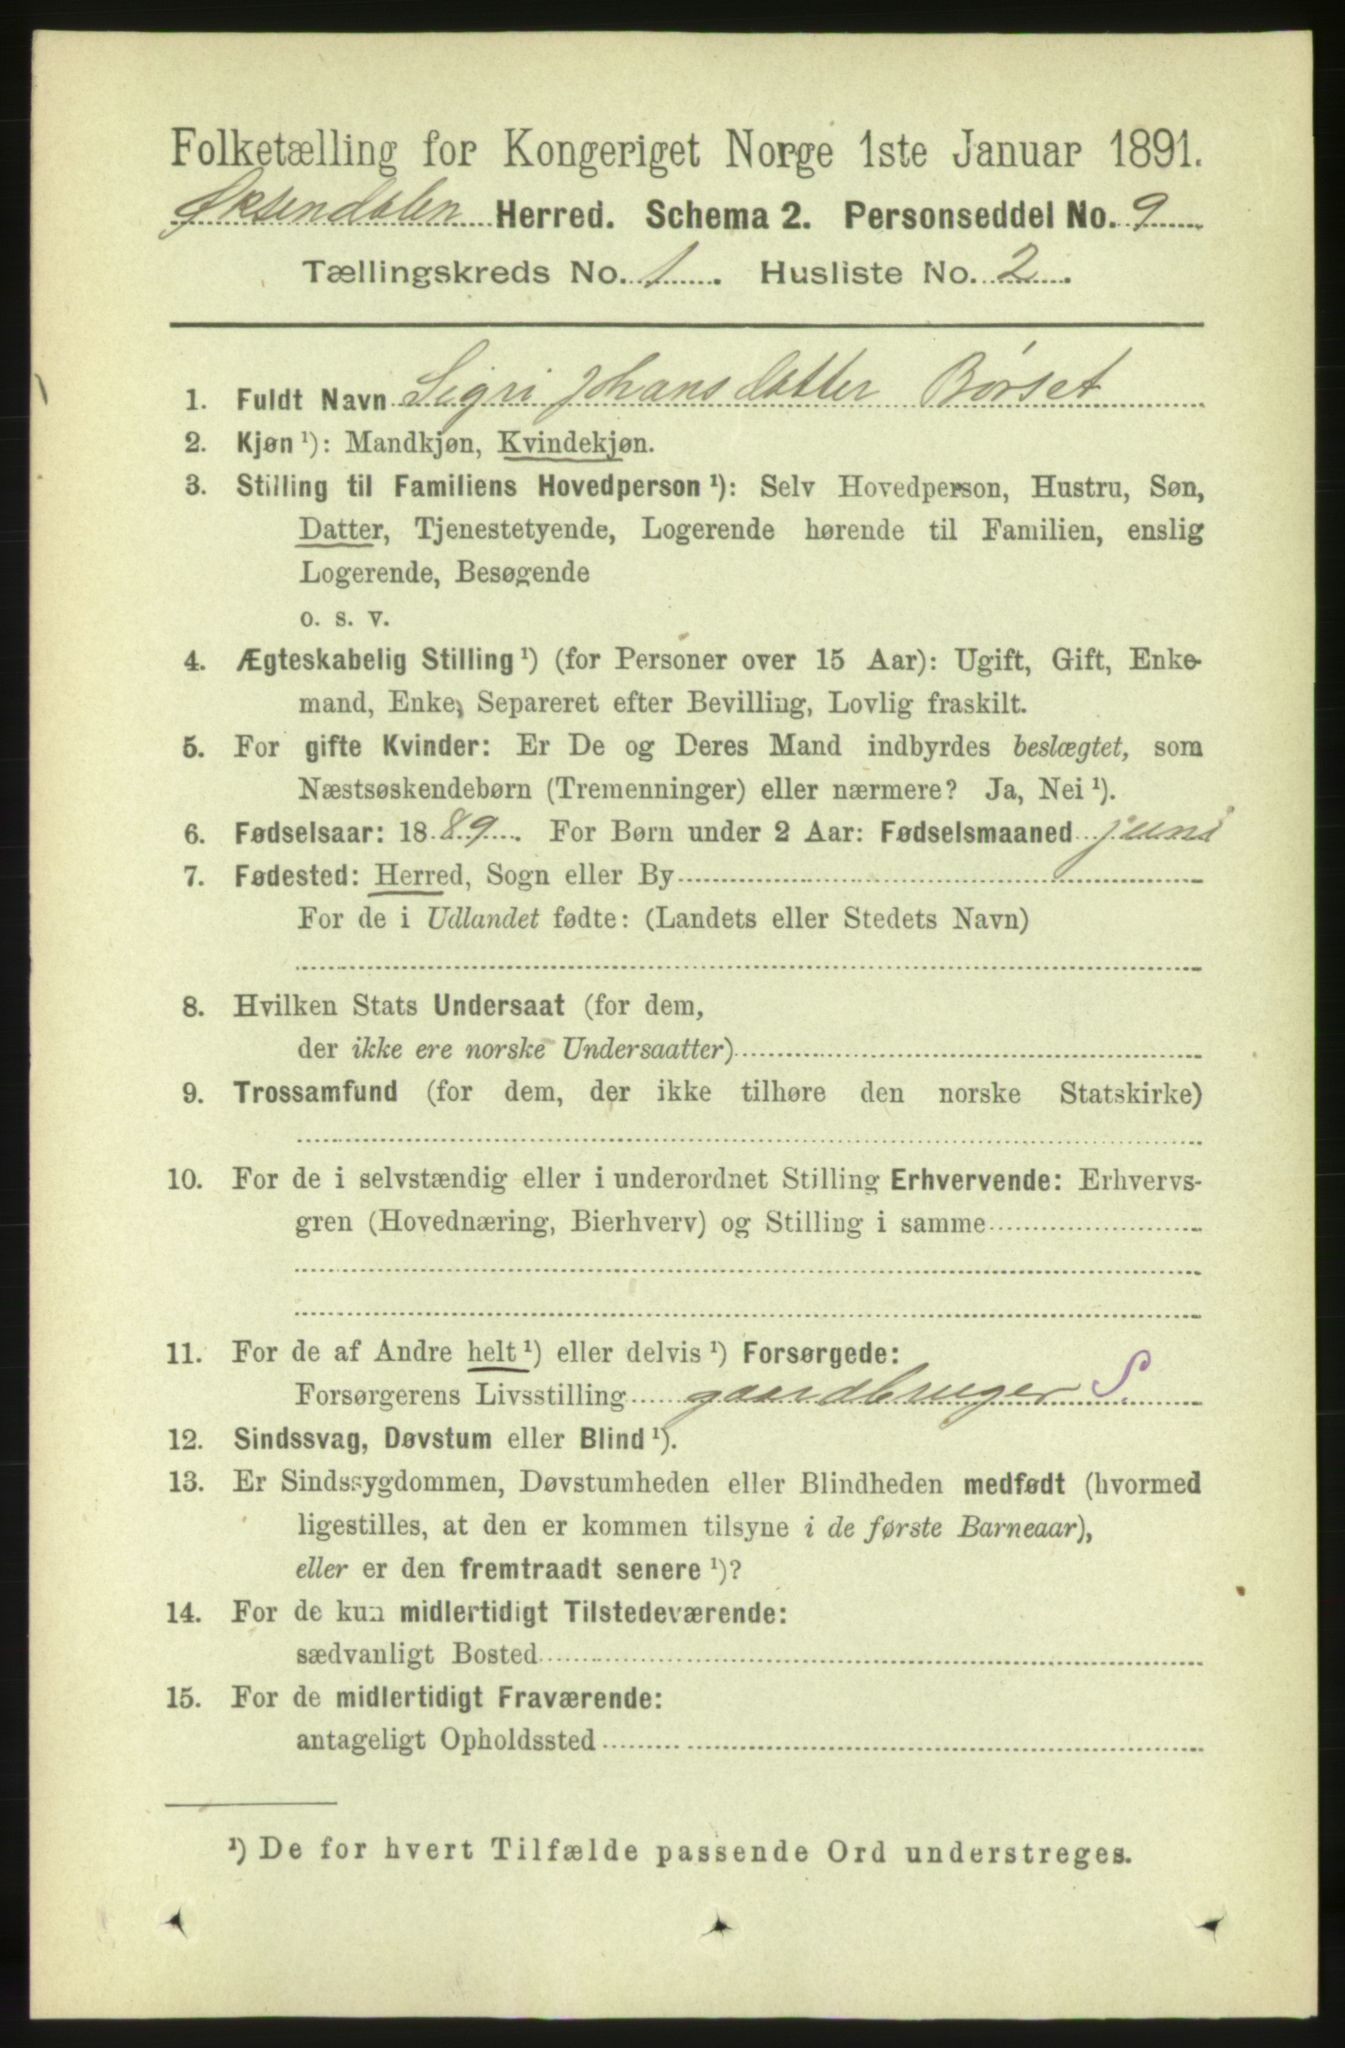 Folketælling for Kongeriget Norge 1ste Januar 1891.
Øksendalen Herred. Schema 2. Personseddel No. 9
Tællingskreds No. 1. Husliste No. 2.
1. Fuldt Navn Sigri Johansdatter Børset
2. Kjøn ¹): Mandkjøn, Kvindekjøn.
3. Stilling til Familiens Hovedperson ¹): Selv Hovedperson, Hustru, Søn,
Datter, Tjenestetyende, Logerende hørende til Familien, enslig
Logerende, Besøgende
o. s. v.
4. Ægteskabelig Stilling ¹) (for Personer over 15 Aar): Ugift, Gift, Enke-
mand, Enke, Separeret efter Bevilling, Lovlig fraskilt.
5. For gifte Kvinder: Er De og Deres Mand indbyrdes beslægtet, som
Næstsøskendebørn (Tremenninger) eller nærmere? Ja, Nei ¹).
6. Fødselsaar: 1889. For Børn under 2 Aar: Fødselsmaaned juni
7. Fødested: Herred, Sogn eller By
For de i Udlandet fødte: (Landets eller Stedets Navn)
8. Hvilken Stats Undersaat (for dem,
der ikke ere norske Undersaatter)
9. Trossamfund (for dem, der ikke tilhøre den norske Statskirke)
10. For de i selvstændig eller i underordnet Stilling Erhvervende: Erhvervs-
gren (Hovednæring, Bierhverv) og Stilling i samme
11. For de af Andre helt ¹) eller delvis ¹) Forsørgede:
Forsørgerens Livsstilling gaardbruger S.
12. Sindssvag, Døvstum eller Blind ¹).
13. Er Sindssygdommen, Døvstumheden eller Blindheden medfødt (hvormed
ligestilles, at den er kommen tilsyne i de første Barneaar),
eller er den fremtraadt senere ¹)?
14. For de kun midlertidigt Tilstedeværende:
sædvanligt Bosted
15. For de midlertidigt Fraværende:
antageligt Opholdssted
¹) De for hvert Tilfælde passende Ord understreges.